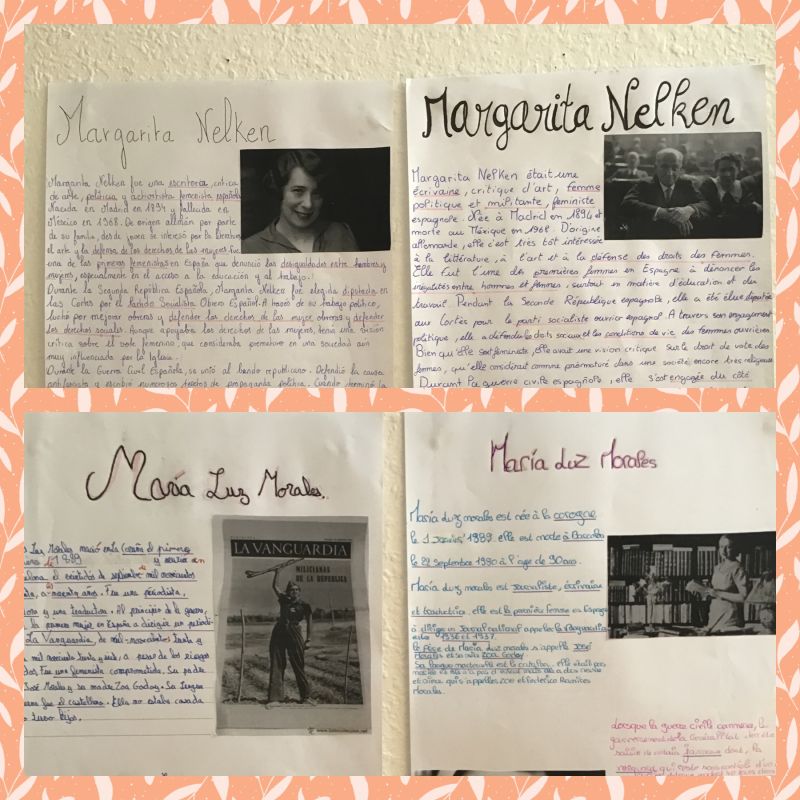 Margarita Nelken
Margarita Nelken fue una escritora, crítica
de arte, política y activistista feminista española
Nacida en Madrid en 1894 y fallecida en
México en 1968. De origen alemán por parte
de su familia, desde joven se interesó por la literatura
el arte y la defensa de los derechos de las mujeres. Fue
una de las primeras feministas en España que denunció las desigualdades entre hombres y
mujeres, especialmente en el acceso a la educación y al trabajo.
Durante la Segunda República Española, Margarita Nelken fue elegida diputada en
las Cortes por el Partido Socialista Obrero Español. A través de su trabajo político,
luchó por mejorar obreras y defender los derechos de las mujer obreras y defender
los derechos sociales. Aunque apoyaba los derechos de las mujeres, tenía una visión
crítica sobre el voto femenino, que consideraba prematuro en una sociedad aún
muy influenciada por la Iglesia.
Durante la Guerra Civil Española, se unió al bando republicano. Defendió la causa
antifascista y escribió numerosos textos de propaganda política. Cuando terminó la
Margarita Nelken
Margarita Nelken était une
écrivaine, critique d'art, femme
politique et militante, féministe
espagnole. Née à Madrid en 1894 et
morte au Méxique en 1968. D'origine
allemande, elle c'est très tôt intéressée
à la littérature, à l'art et à la défense des droits des femmes.
Elle fut l'une des premières femmes en Espagne à dénoncer les
inégalités entre hommes et femmes, surtout en matière d'éducation et de
travail. Pendant la Seconde République espagnole, elle a été élue députée
aux Cortès pour le parti socialiste ouvrier espagnol. A travers son engagement
politique, elle a défendu les droits sociaux et les conditions de vie des femmes ouvrières
Bien qu'elle soit féministe, elle avait une vision critique sur le droit de vote des
femmes, qu'elle considérait comme prématuré dans une société encore très religieuse
Durant la guerre civile espagnole, elle s'est engagée du côté
María Luz Morales.
Luz Morales nació en la Coruña el primero
enero de 1889 y murió en
el veintidos de septiembre de mil novecientos
a noventa anos. Fue una periodista,
y una traductora. Al principio de la guerra,
la primera mujer en España a dirigir un periodi-
La Vanguardia, de mil novecientos treinta y
mil novecientos treinta y siete, a pesar de los riesgos
Fue una feminista comprometida. Su padre
José Morales y su madre Zoa Godoy. Su lengua
fue el castellano. Ella no estaba casada
tuvo hijos.
LA VANGUARDIA
MILICIANAS
DE LA REPUBLICA
María Luz Morales
María Luz morales est née à la corogne
le 1 Janvier 1889. elle est morte à Barcelone
le 22 Septembre 1980 à l'age de 90 ans.
María Luz morales est journaliste, écrivaine
et traductrice. elle est la première femme en Espagne
à diriger un Journal national appelle la Vanguardia
entre 1936 et 1937.
le Père de María Luz morales s'appelle José
Morales et sa mère Zoa Godoy
Sa langue maternelle est le catallan, elle était pas
Morales.
lorsque la guerre civile commence, le
gouvernement de la Generalitat